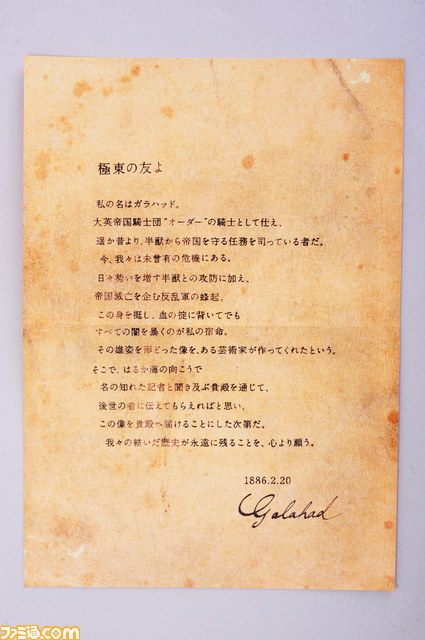 極東の友よ
私の名はガラハッド。
大英帝国騎士団“オーダー”の騎士として仕え、
遥か昔より、半獣から帝国を守る任務を司っている者だ。
今、我々は未曾有の危機にある。
日々勢いを増す半獣との攻防に加え、
帝国滅亡を企む反乱軍の蜂起。
この身を挺し、血の掟に背いてでも
すべての闇を暴くのが私の宿命。
その雄姿を形どった像を、ある芸術家が作ってくれたという。
そこで、はるか海の向こうで
名の知れた記者と聞き及ぶ貴殿を通じて、
後世の者に伝えてもらえればと思い、
この像を貴殿へ届けることにした次第だ。
我々の紡いだ歴史が永遠に残ることを、心より願う。
1886.2.20
Galahad
ファミ通.com